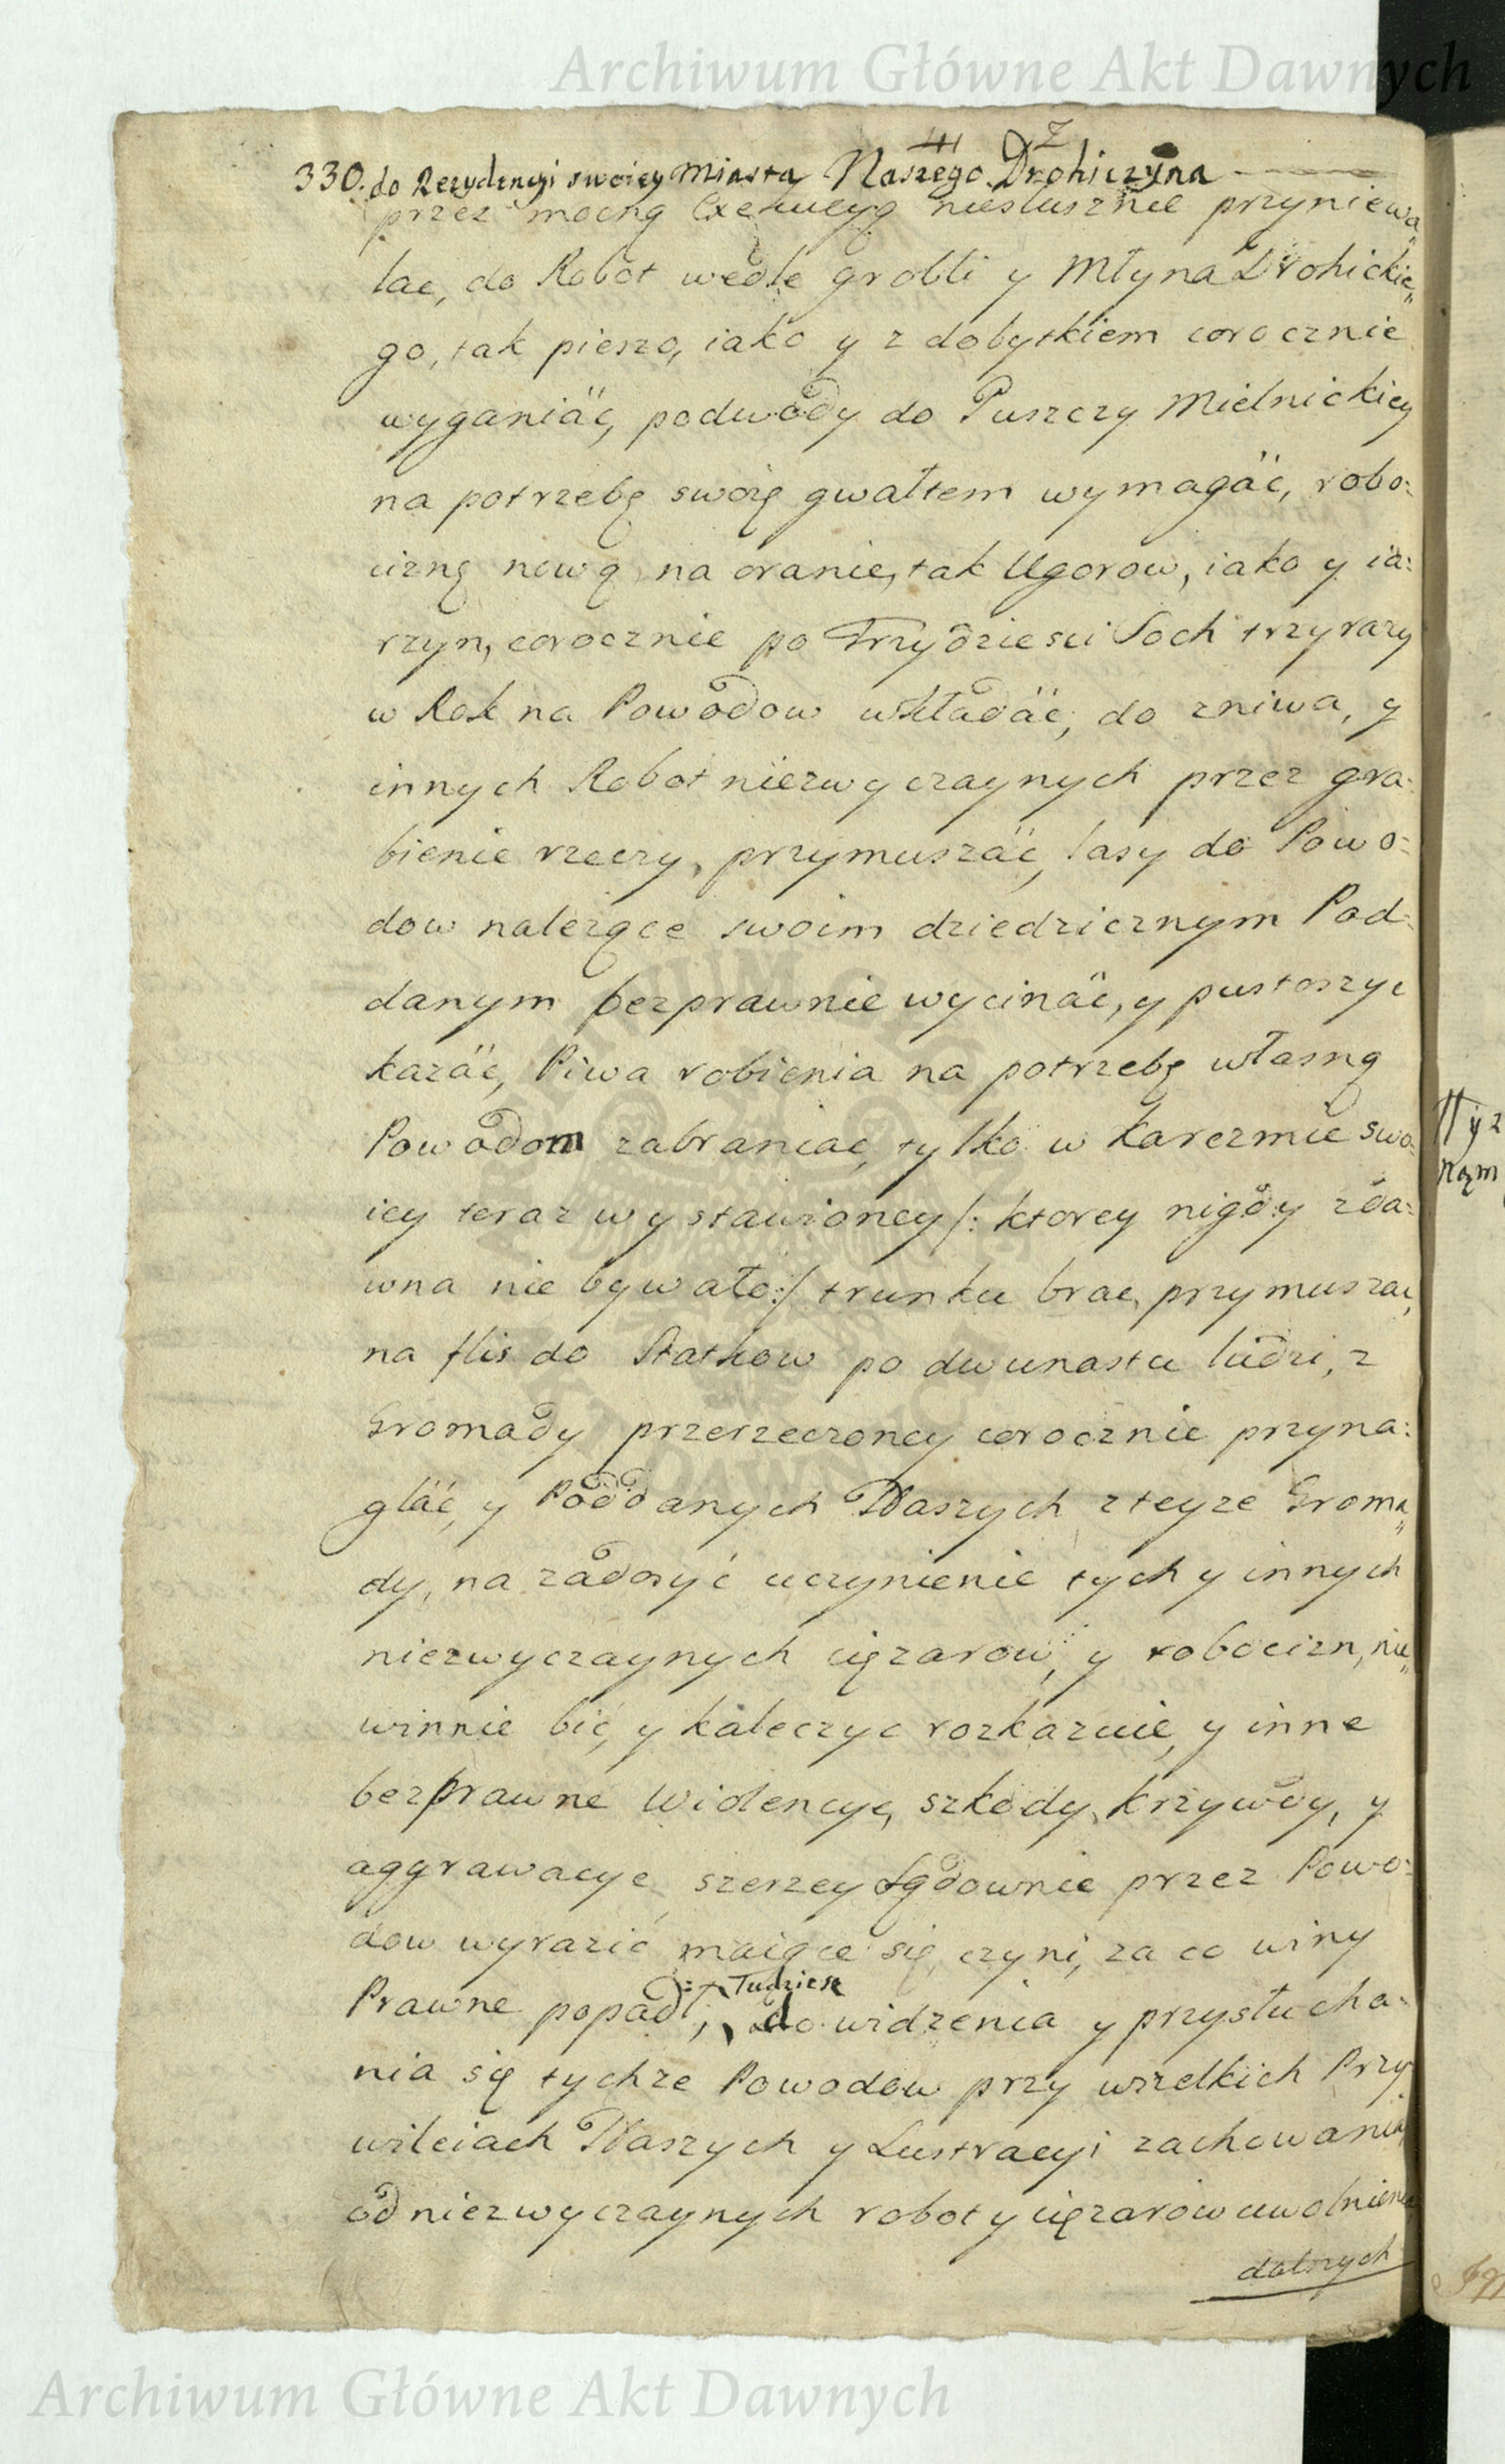 Archiwum Główne Akt Dawnych
330. do Rezydencyi swoiey Miasta Naszego Drohiczyna
przez mocną Exekucyą niesłusznie przyniewa„
lac, do Robot wedle grobli y Młyna Drohickie„
go, tak pieszo, iako y z dobytkiem corocznie
wyganiäć, podwody do Puszczy Mielnickiey
na potrzebę swoię gwałtem wymagäć, robo:
ciznę nową na oranie, tak Ugorow, iako y ia:
rzyn, corocznie po Trzydziesci Soch trzy razy
w Rok na Powodow wkładäć, do zniwa, y
innych Robot niezwyczaynych przez gra:
bienie rzeczy, przymuszäć, lasy do Powo:
dow nalezące swoim dziedzicznym Pod:
danym bezprawnie wycinäć, y pustoszyc
kazäć, Piwa robienia na potrzebę własną
Powodom zabraniac, tylko w karczmie swo„
iey teraz wystawioney /: ktorey nigdy zda:
wna nie bywało :/ trunku brac, przymuszac,
na flis do Statkow po dwunastu ludzi, z
Gromady przerzeczoney corocznie przyna:
gläć, y Poddanych Naszych z teyze Groma„
dy, na zadosyć uczynienie tych y innych
niezwyczaynych cięzarow, y robocizn, nie„
winnie bić, y kaleczyc rozkazuie, y inne
bezprawne Wiolencye, szkody, krzywdy, y
aggrawacye szerzey sądownie przez Powo:
dow wyrazić maiące się, czyni, za co winy
Tudziesz
Prawne popadł; do widzenia y przysłucha:
nia się tychze Powodow przy wszelkich Przy
wileiach Naszych y Lustracyi zachowania,
od niezwyczaynych robot y cięzarow uwolnienia
dalszych
Archiwum Główne Akt Dawnych